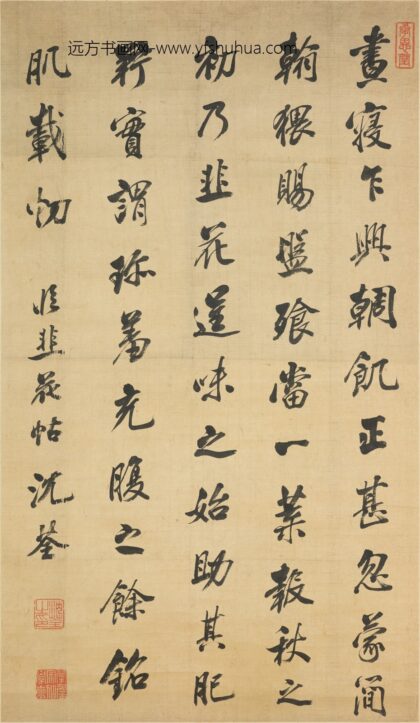 远方书画网-www.yishuhua.com
晝寢乍興輖飢正甚忽蒙簡
翰猥賜盤飧當一葉報秋之
初乃韭花逞味之始助其肥
羜實謂珍羞充腹之餘銘
肌載切 臨韭花帖 沈荃